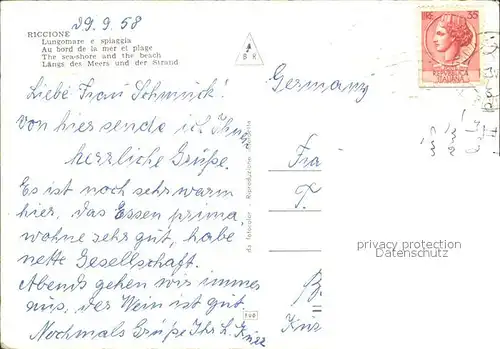 29.9.58
RICCIONE
Lungomare e spiaggia
Au bord de la mer et plage
The sea-shore and the beach
Längs des Meers und der Strand
B R
LIRE 35
Germany
Liebe Frau Schmuck!
Von hier sende ich Ihnen
herrliche Grüße.
Es ist noch sehr warm
hier, das Essen prima
wohne sehr gut, habe
nette Gesellschaft.
Abends gehen wir immer
aus, der Wein ist gut
Nochmals Grüße Ihr
da fotocolor - Riproduzione
privacy protection
Datenschutz